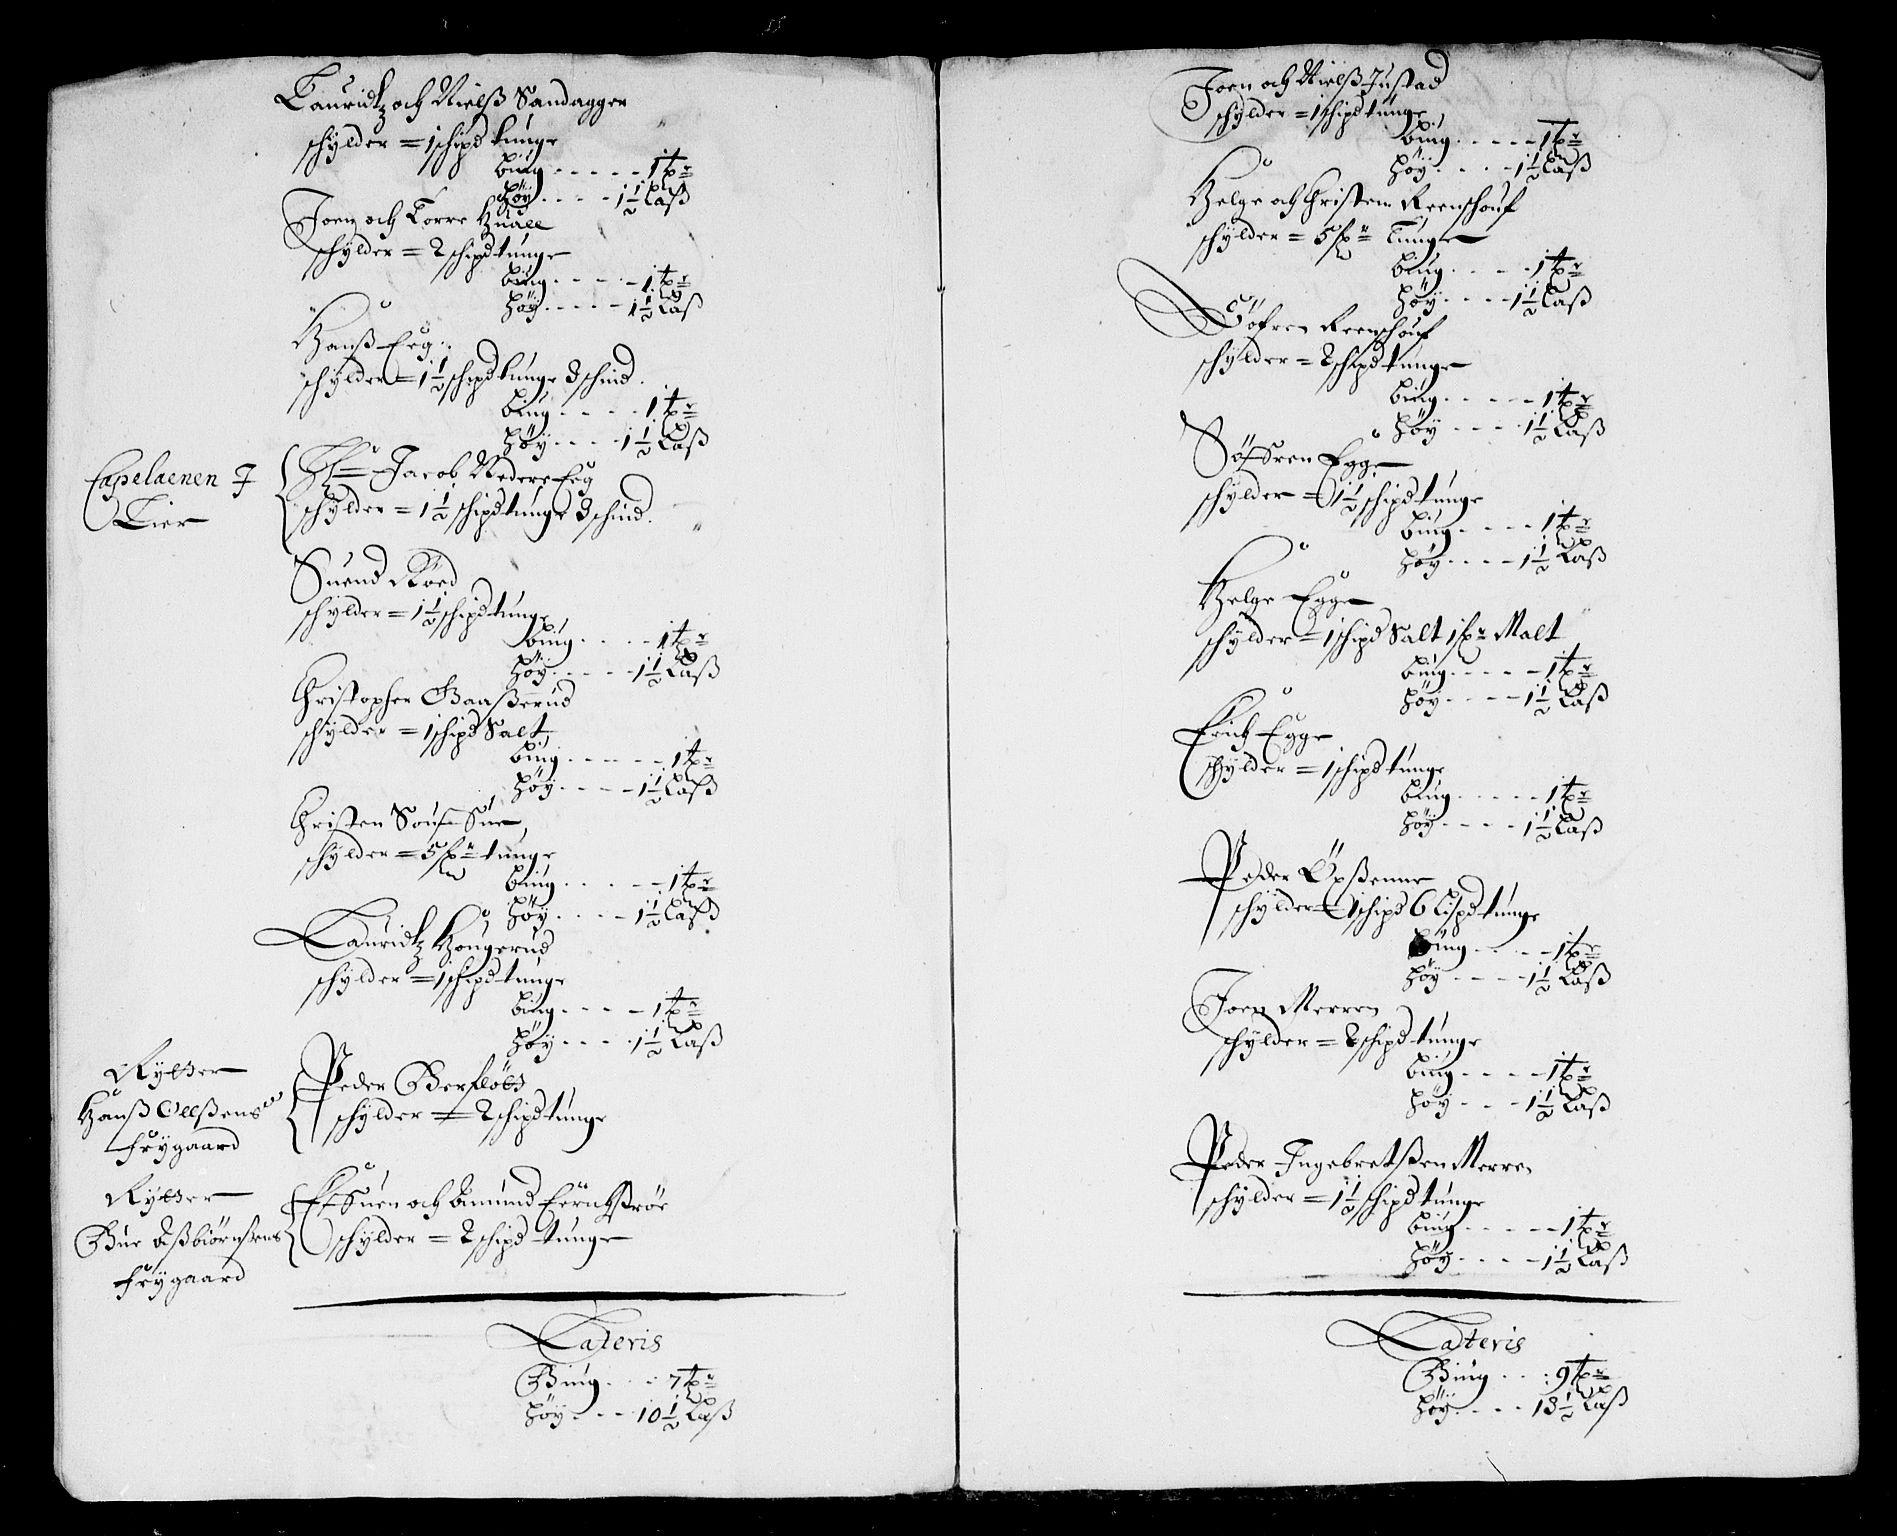 Lauridtz och Nielß Sandagger
schylder = 1 schipd tunge
biug - - - - - 1 tr
höy - - - - 1½ Laß
Joen och Torre Huale
schylder = 2 schipd tunge
biug - - - - - 1 tr
höy - - - - - 1½ Laß
Hanß Eeg
schylder = 1½ schipd tunge 3 schind.
biug - - - - 1 tr
höy - - - - 1½ Laß
Capelaenen J
Lier
Hr Jacob Nedere Eeg
schylder = 1½ schipd tunge 3 schind.
Suend Röed
schylder = 1½ schipd tunge
biug - - - - 1 tr
höy - - - - - 1½ Laß
Christopher Baaßerud
schylder = 1 schipd Salt
biug - - - - - - 1 tr
höy - - - - - 1½ Laß
Christen
schylder = 5 tunge
biug - - - - - - 1 tr
höy - - - - - 1½ Laß
Lauridtz Hougerud
schylder = 1 schipd tunge
biug - - - - - 1 tr
höy - - - - - 1½ Laß
Rytter
Hanß Ollßens
frygaard
Peder Berflödt
schylder = 2 schipd tunge
Rytter
Bue Aßbiørnßens
frygaard
Suen och Amund
schylder = 2 schipd tunge
Lateris
Biug - - - 7 tr
höy - - - - 10½ Laß
Joen och Nielß Justad
schylder = 1 schipd tunge
biug - - - - - 1 tr
höy - - - - 1½ Laß
Helge och Christen Reenschouf
schylder = 5 tunge
biug - - - - 1 tr
höy - - - - 1½ Laß
Söfren Reenschouf
schylder = 2 schipd tunge
biug - - - - - 1 tr
höy - - - - 1½ Laß
Söfren Egge
schylder = 1½ schipd tunge
biug - - - - 1 tr
höy - - - - 1½ Laß
Helge Egge
schylder = 1 schipd Salt 1 Malt
biug - - - - - 1 tr
höy - - - - 1½ Laß
Erich Egge
schylder = 1 schipd tunge
biug - - - - - 1 tr
höy - - - - 1½ Laß
Peder Öxßenne
schylder = 1 schipd 6 lispd tunge
biug - - - - 1 tr
höy - - - - 1½ Laß
Joen Merren
schylder = 2 schipd tunge
biug - - - - - 1 tr
höy - - - 1½ Laß
Peder Ingebretßen Merren
schylder = 1½ schipd tunge
biug - - - - - 1 tr
höy - - - - 1½ Laß
Lateris
Biug - - - 9 tr
höy - - - - 13½ Laß